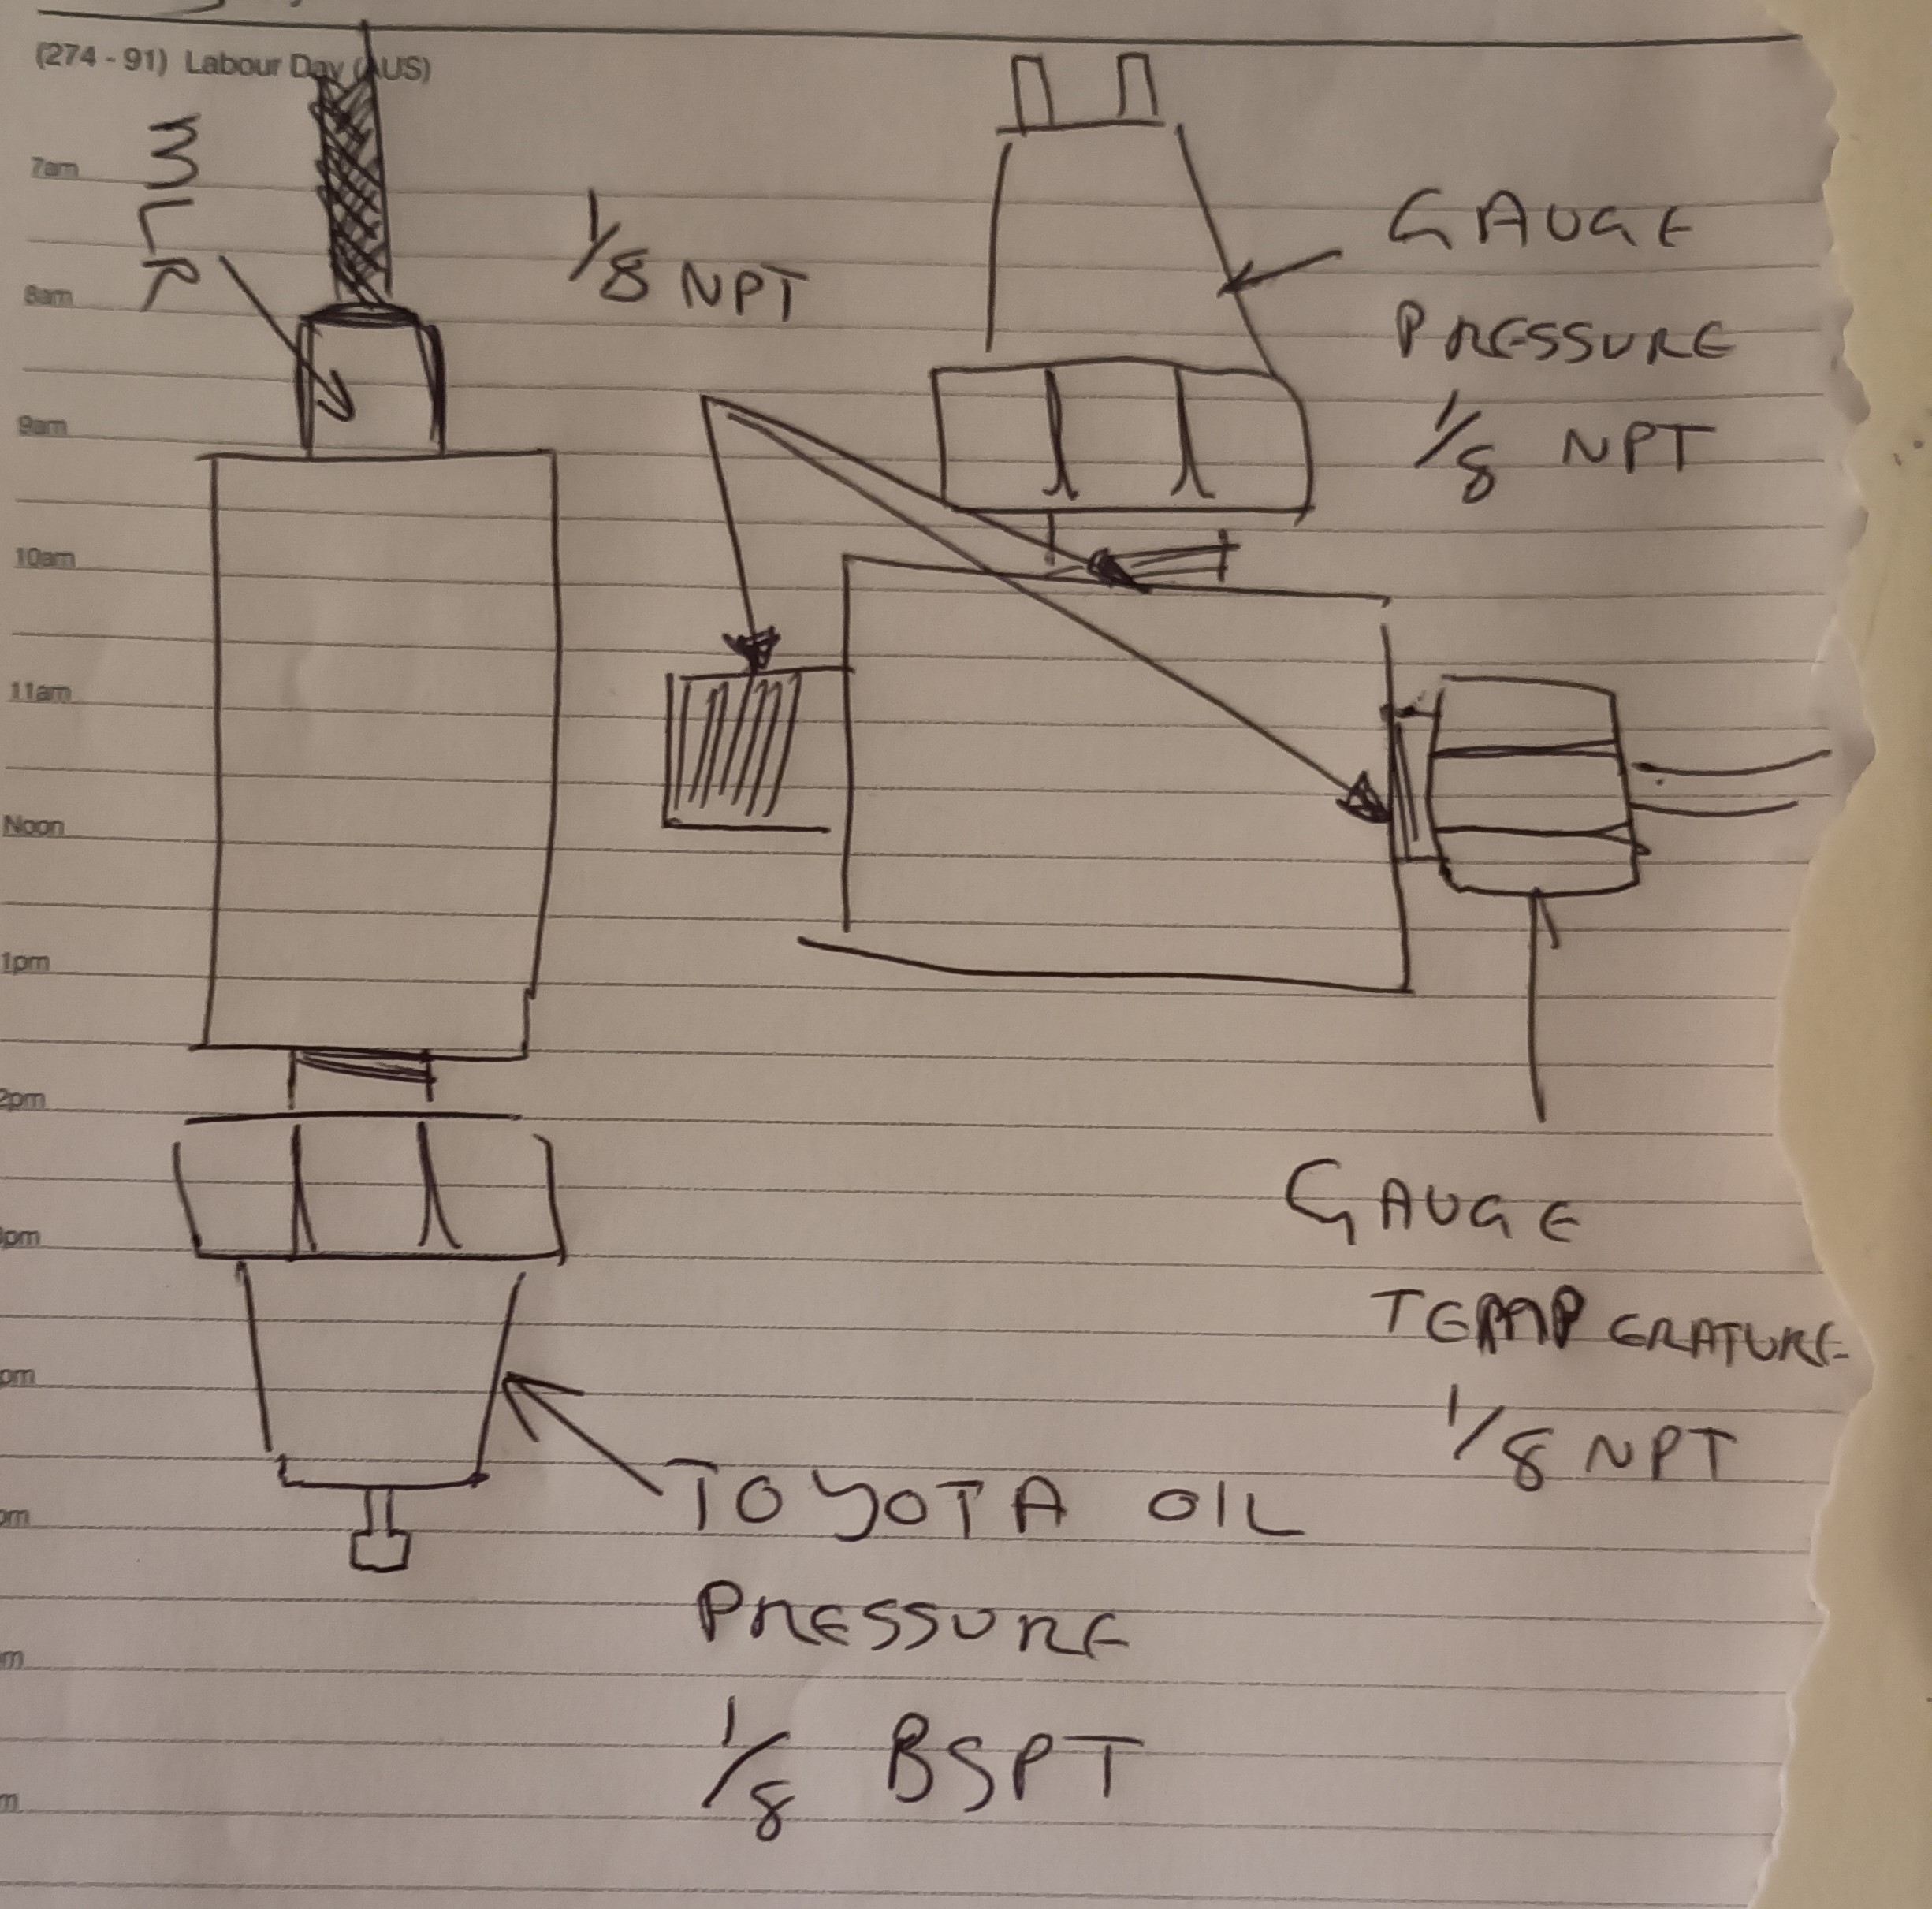 (274 - 91) Labour Day (AUS)
7am
8am
9am
10am
11am
Noon
1pm
2pm
3pm
pm
pm
m
m
1/8 NPT
GAUGE
PRESSURE
1/8 NPT
GAUGE
TEMPERATURE
1/8 NPT
TOYOTA OIL
PRESSURE
1/8 BSPT